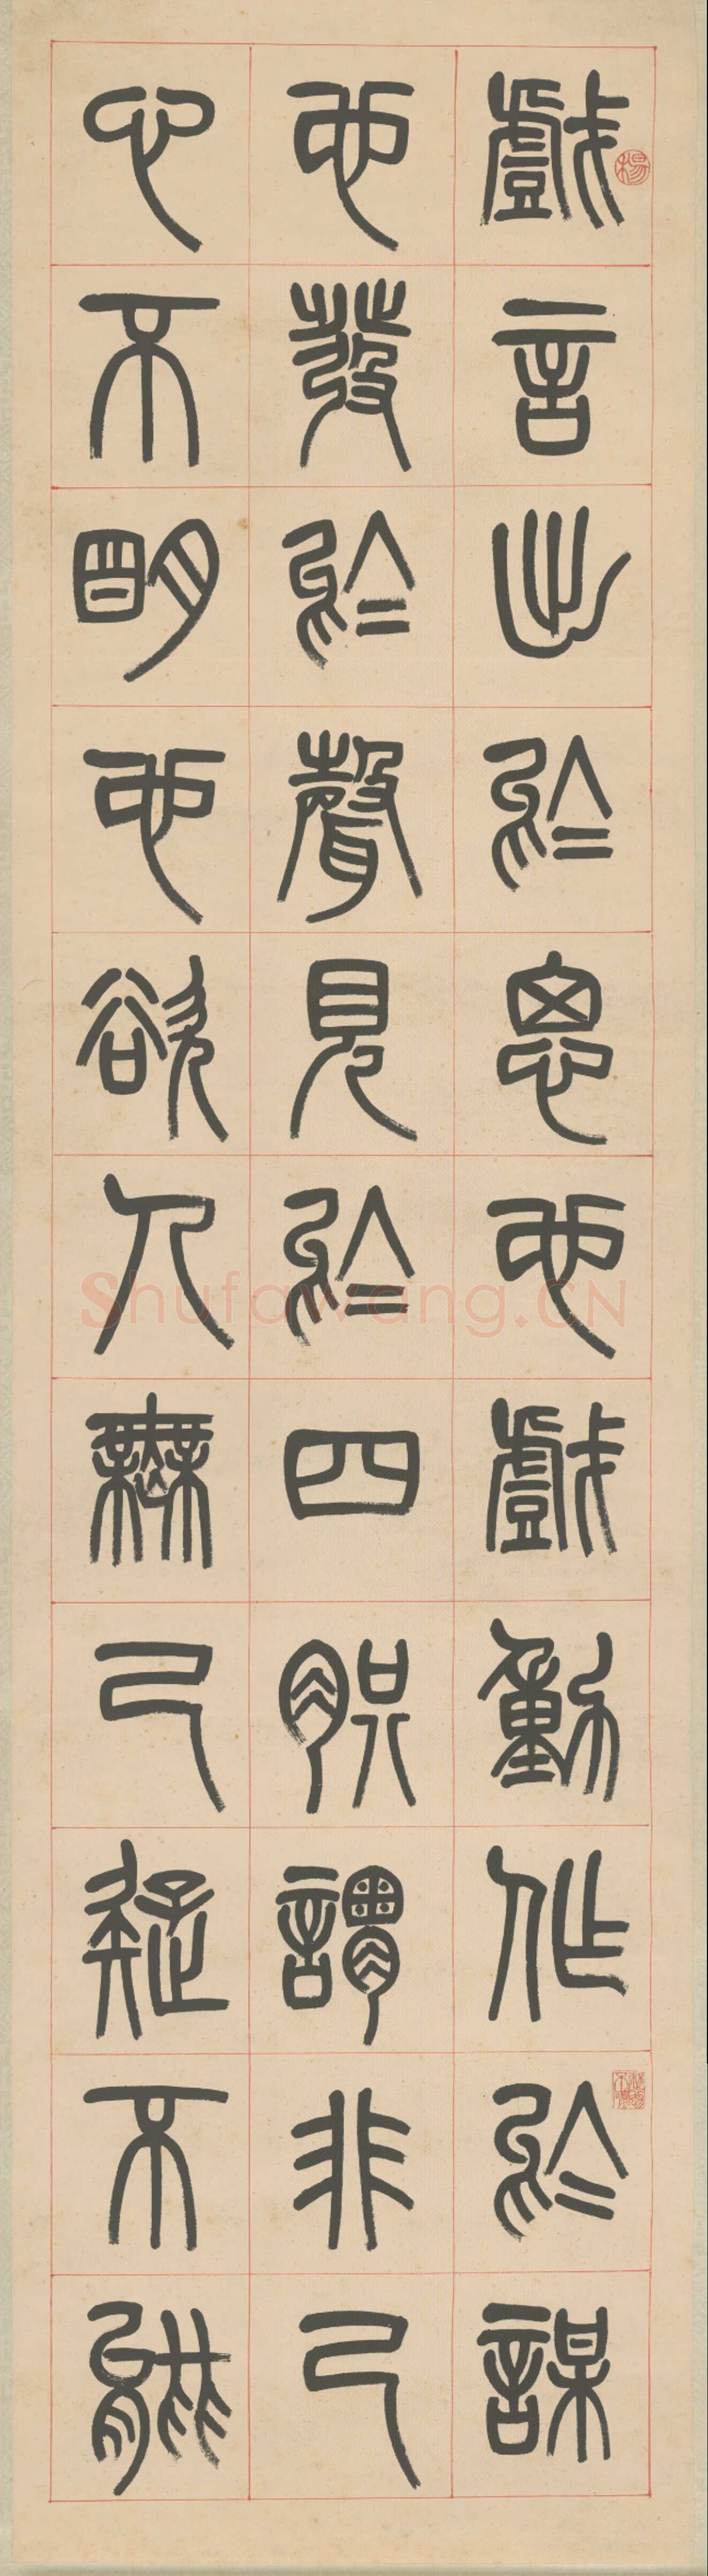 戲言出於思也戲動作於謀
也發於聲見於四肢謂非己
心不明也欲人無己疑不能
Shufawang.CN
楊